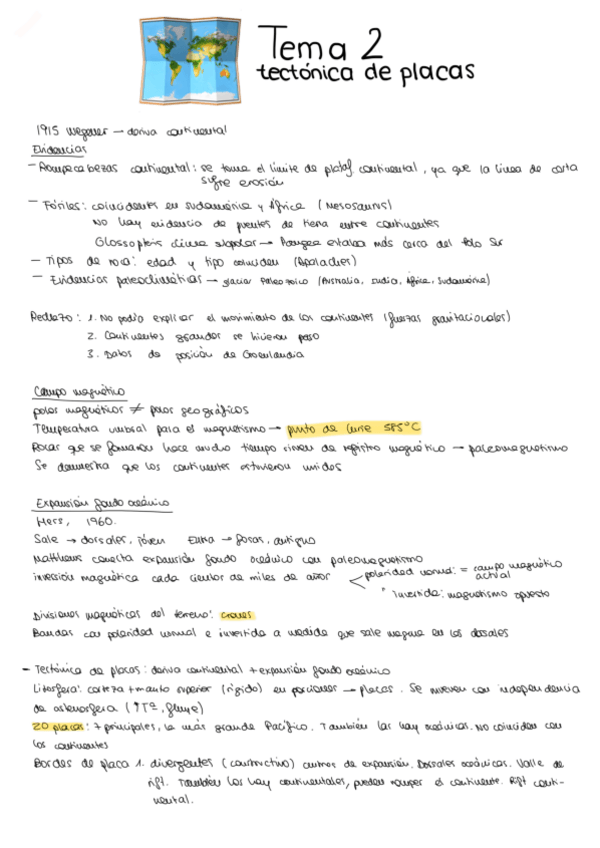 Tema 2
tectónica de placas
1915 Wegener → deriva continental
Evidencias
- Rompecabezas continental: se toma el límite de plataf. continental, ya que la línea de costa
sufre erosión
- Fósiles: coincidentes en sudamérica y África (Mesosaurus)
No hay evidencia de puentes de tierra entre continentes
Glossopteris clima subpolar → Pangea estaba más cerca del Polo Sur
- Tipos de roca: edad y tipo coinciden (Apalaches)
- Evidencias paleoclimáticas → glaciar Paleozoico (Australia, India, África, Sudamérica)
Rechazo: 1. No podía explicar el movimiento de los continentes (fuerzas gravitacionales)
2. Continentes grandes se hicieron paso
3. Datos de posición de Groenlandia
Campo magnético
polos magnéticos ≠ polos geográficos
Temperatura umbral para el magnetismo → punto de Curie 585°C
Rocas que se formaron hace mucho tiempo sirven de registro magnético → paleomagnetismo
Se demuestra que los continentes estuvieron unidos
Expansión fondo oceánico
Hess, 1960.
Sale → dorsales, jóven Entra → fosas, antiguo
Matthews conecta expansión fondo oceánico con paleomagnetismo
inversión magnética cada cientos de miles de años polaridad normal: = campo magnético
actual
invertida: magnetismo opuesto
Divisiones magnéticas del terreno: crones
Bandas con polaridad normal e invertida a medida que sale magma en las dorsales
- Tectónica de placas: deriva continental + expansión fondo oceánico
Litosfera: corteza + manto superior (rígido) en porciones → placas. Se mueven con independencia
de astenosfera (↑Tª, fluye)
20 placas: 7 principales, la más grande Pacífico. También las hay oceánicas. No coinciden con
los continentes
Bordes de placa 1. divergentes (constructivo) centros de expansión. Dorsales oceánicas. Valle de
rift. También los hay continentales, pueden romper el continente. Rift conti-
nental.